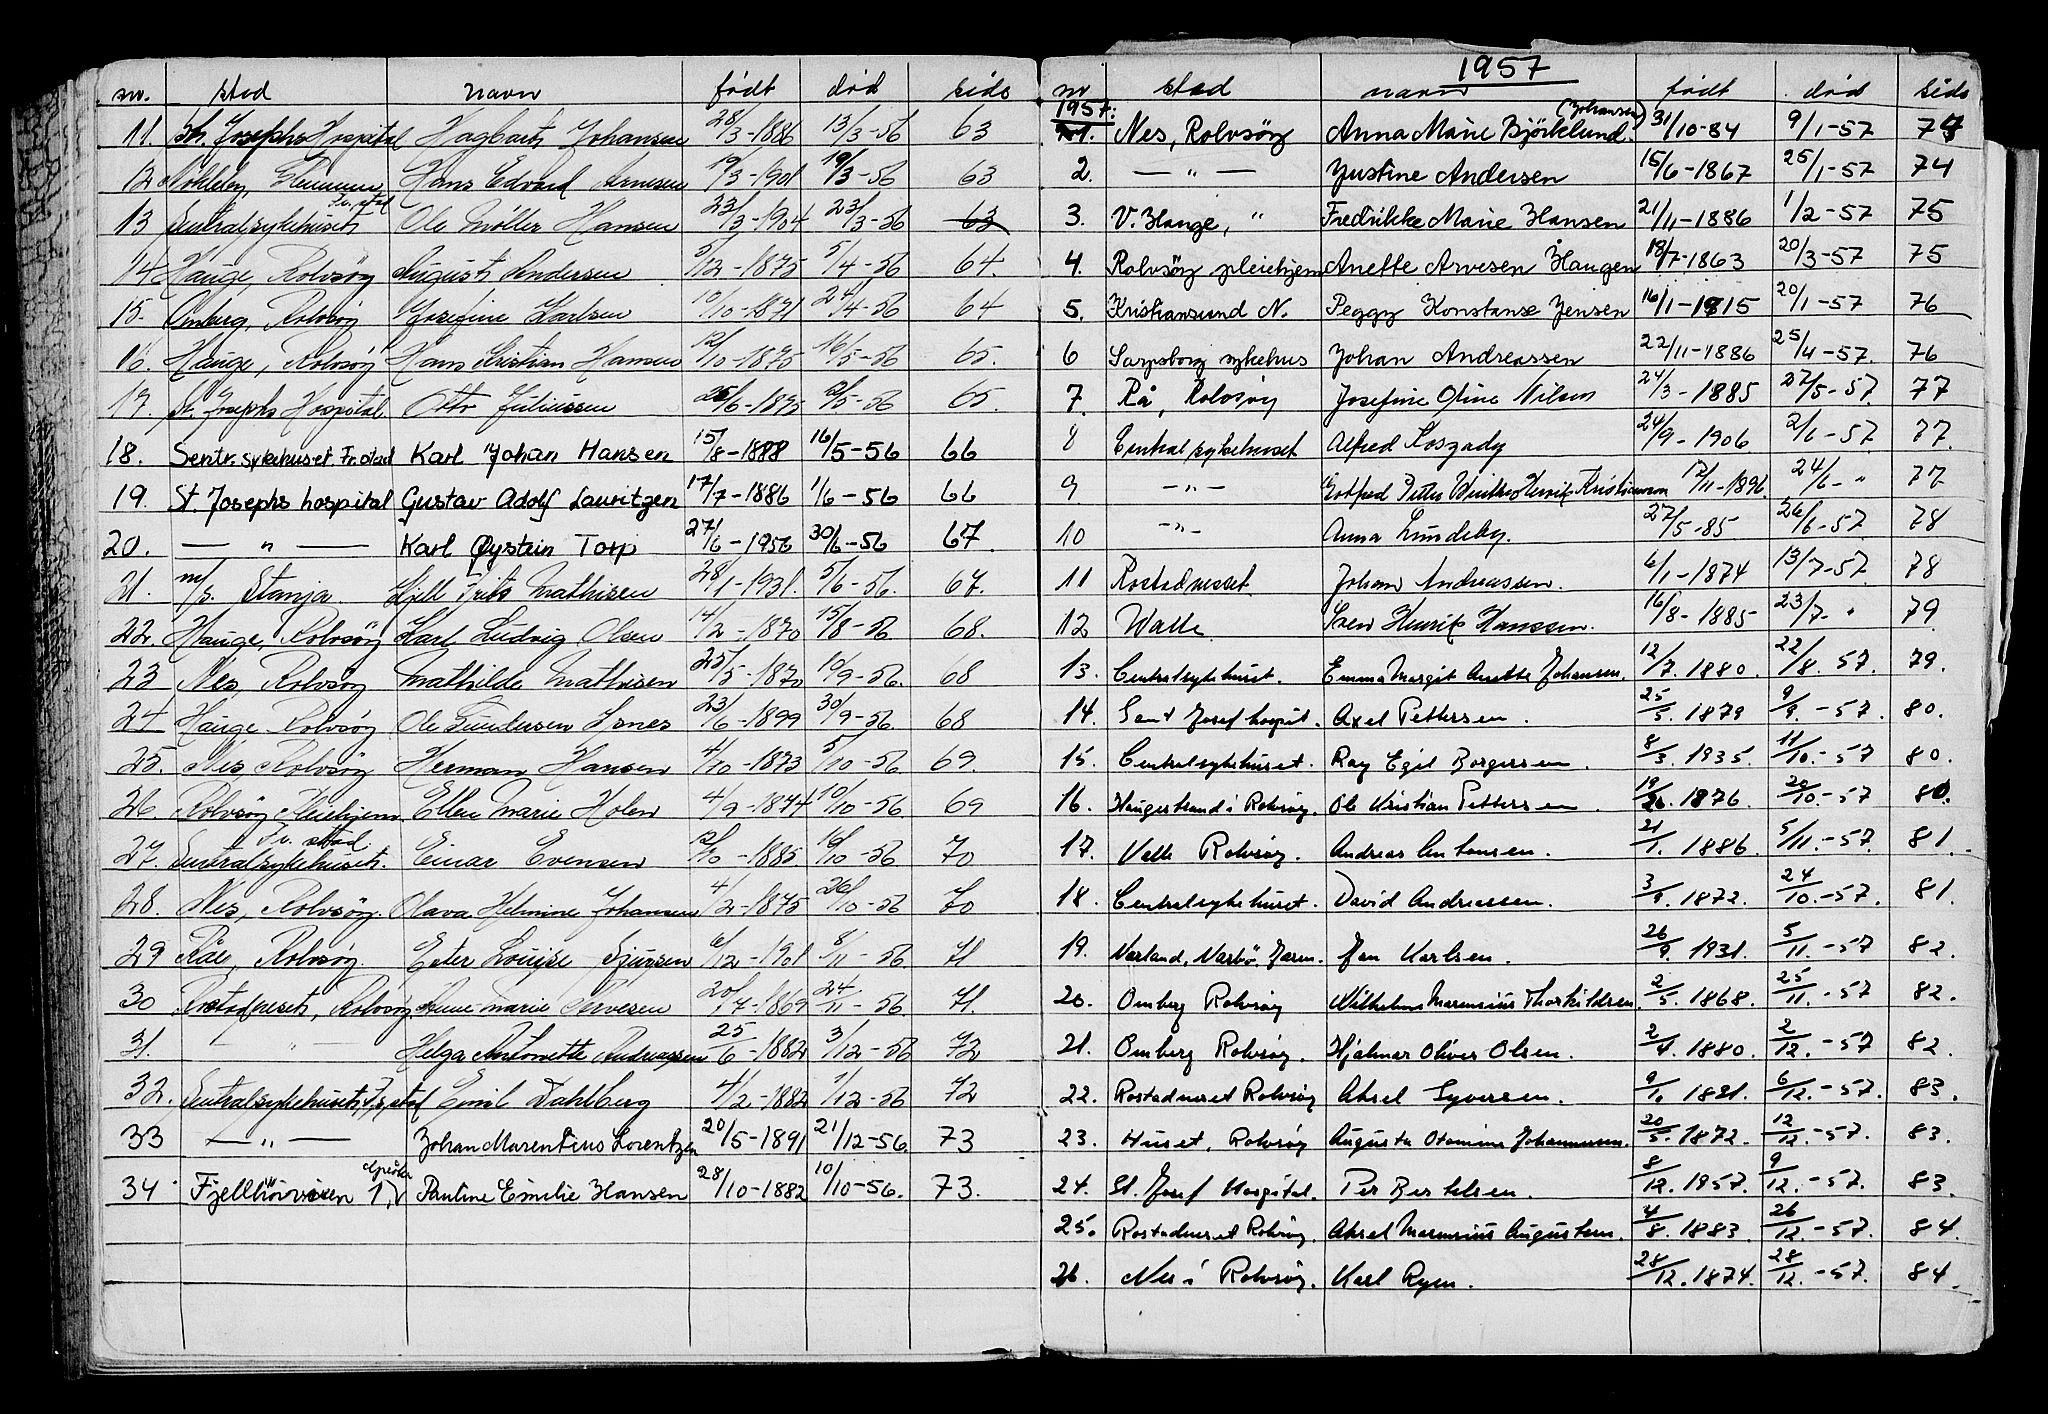 nr. stad navn født død side
11. St. Josephs Hospital Hagbart Johansen 28/3-1886 13/3-56 63
12 Nökleby, Glemmen Hans Edvard Arnesen 19/3-1901 19/3-56 63
Fr.stad
13 Sentralsykehuset Ole Möller Hansen 23/3-1904 23/3-56 63
14 Hauge, Rolvsöy August Andersen 5/12-1875 5/4-56 64.
15. Omberg, Rolvsöy Josefine Karlsen 10/10-1871 24/4-56 64
16. Hauge, Rolvsöy Hans Kristian Hansen 12/10-1875 16/5-56 65.
17. St. Josephs Hospital Otto Juliussen 26/6-1895 2/5-56 65.
18. Sentr. sykehuset Fr.stad Karl Johan Hansen 15/8-1888 16/5-56 66
19. St. Josephs hospital Gustav Adolf Lauritzen 17/7-1886 1/6-56 66
20. — " — Karl Øystein Torp 27/6-1956 30/6-56 67.
21. m/s. Stanja. Kjell Frits Mathisen 28/1-1931. 5/6-56. 67.
22. Hauge, Rolvsöy Karl Ludvig Olsen 14/2-1870 15/8-56 68.
23 Nes, Rolvsöy Mathilde Mathisen 25/5-1870 10/9-56. 68
24 Hauge Rolvsöy Ole Gundersen 23/6-1899 30/9-56. 68
25. Nes, Rolvsöy Herman Hansen 4/10-1873 5/10-56 69.
26. Rolvsöy Pleiehjem Ellen Marie Holen 4/9-1874 10/10-56 69
Fr. stad
27. Sentralsykehuset. Einar Evensen 12/10-1885 16/10-56 70
28. Nes, Rolvsöy. Olava Helmine Johansen 4/2-1875 26/10-56 70
29 Råe, Rolvsöy. Ester Louise Sjursen 6/12-1901 8/11-56. 71
30 Rostadneset, Rolvsöy. Anne Marie Arvesen 20/7-1869 24/11-56. 71.
31. — " — Helga Antonette Andreassen 25/6-1882 3/12-56 72
32. Sentralsykehuset, Fr.stad Emil Dahlberg 4/2-1882 1/12-56 72
33 — " — Johan Marentius Lorentzen 20/5-1891 21/12-56. 73
34 Pauline Emilie Hansen 28/10-1882 10/10-56. 73.
1957
nr stad navn født død side
1957: (Johansen)
1. Nes, Rolvsöy Anna Marie Björklund. 31/10-84 9/1-57 74
2. — " — Justine Andersen 15/6-1867 25/1-57 74
3. V. Hauge, " Fredrikke Marie Hansen 21/11-1886 1/2-57 75
4. Rolvsöy pleiehjem Anette Arvesen Haugen 18/7-1863 20/3-57 75
5. Kristiansund N. Peggy Konstanse Jensen 16/1-1915 20/1-57 76
6 Sarpsborg sykehus Johan Andreassen 22/11-1886 25/4-57. 76
7. Rå, Rolvsöy Josefine Oline Nilsen 24/3-1885 27/5-57. 77
8 Centralsykehuset Alfred 24/9-1906 2/6-57 77.
9 — " — 12/11-1896. 24/6- " 77.
10 — " — Anna Lundeby. 27/5-85 26/6-57. 78
11 Rostadneset. Johan Andreassen. 6/1-1874 13/7-57. 78
12 Valle. Sven Henrik Hanssen. 16/8-1885 23/7- " 79
13. Centralsykehuset. Emma Margit Anette Johansen. 12/7. 1880. 22/8. 57. 79.
14. Sant Josef hospit. Axel Pettersen. 25/5. 1879 9/9.-57. 80.
15. Centralsykehuset. Ray Egil Borgersen. 8/3. 1935. 11/10.-57 80.
16. Haugestrand i Rolvsøy. Ole Kristian Pettersen. 19/. 1876. 20/10.-57 80.
17. Valle Rolvsøy. Andreas Antonsen. 21/1. 1886. 5/11.-57. 81.
18. Centralsykehuset. David Andreassen. 3/9. 1872. 24/10.-57. 81.
19. Jan Karlsen. 26/9. 1931. 5/11.-57 82.
20. Omberg Rolvsøy Wilhelm Marensius Thorkildsen. 2/5. 1868. 25/11.-57 82.
21. Omberg Rolvsøy. Hjalmar Oliver Olsen. 2/4. 1880. 2/12.-57 82.
22. Rostadneset Rolvsøy Aksel Syversen. 9/1. 1881. 6/12.-57. 83.
23. Huset, Rolvsøy Augusta Otomine Johannessen. 20/5. 1872. 12/12.-57. 83.
24. St. Josef Hospital. Per Bertelsen. 8/12. 1957. 9/12.-57. 83.
25. Rostadneset Rolvsøy. Aksel Marensius Augustsen. 4/8. 1883. 26/12.-57 84.
26. Nes i Rolvsøy. Karl Ryen. 28/12. 1874. 28/12.-57. 84.